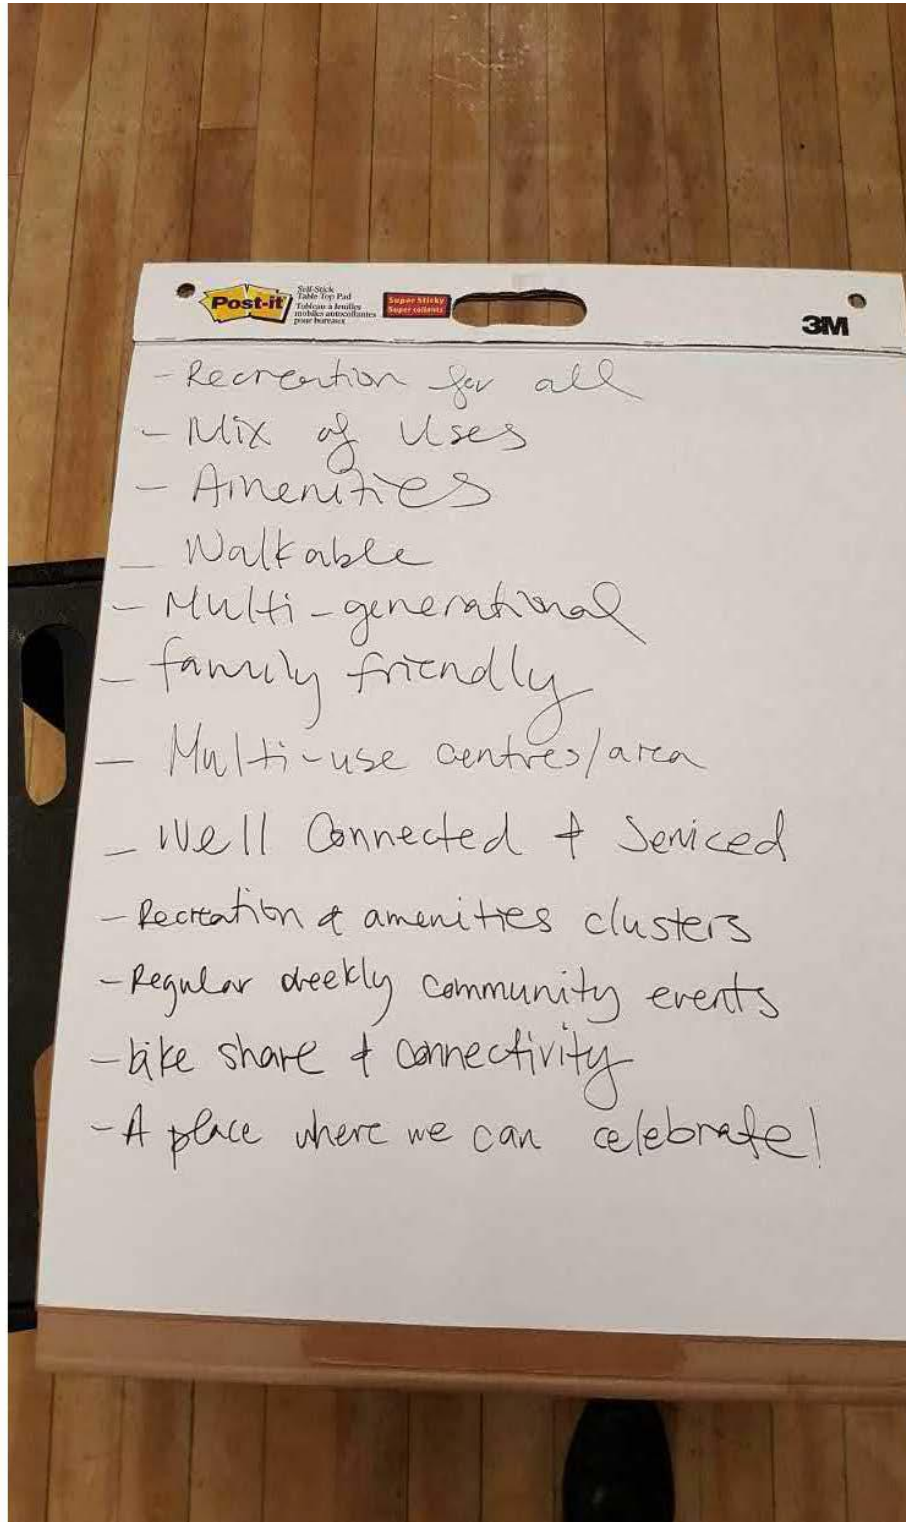 Post-it
Self-Stick
Table Top Pad
Tableau à feuilles
mobiles autocollantes
pour bureaux
Super Sticky
Super collants
3M
- Recreation for all
- Mix of Uses
- Amenities
- Walkable
- Multi-generational
- family friendly
- Multi-use centres/area
- Well Connected & Serviced
- Recreation & amenities clusters
- Regular weekly community events
- bike share & connectivity
- A place where we can celebrate!